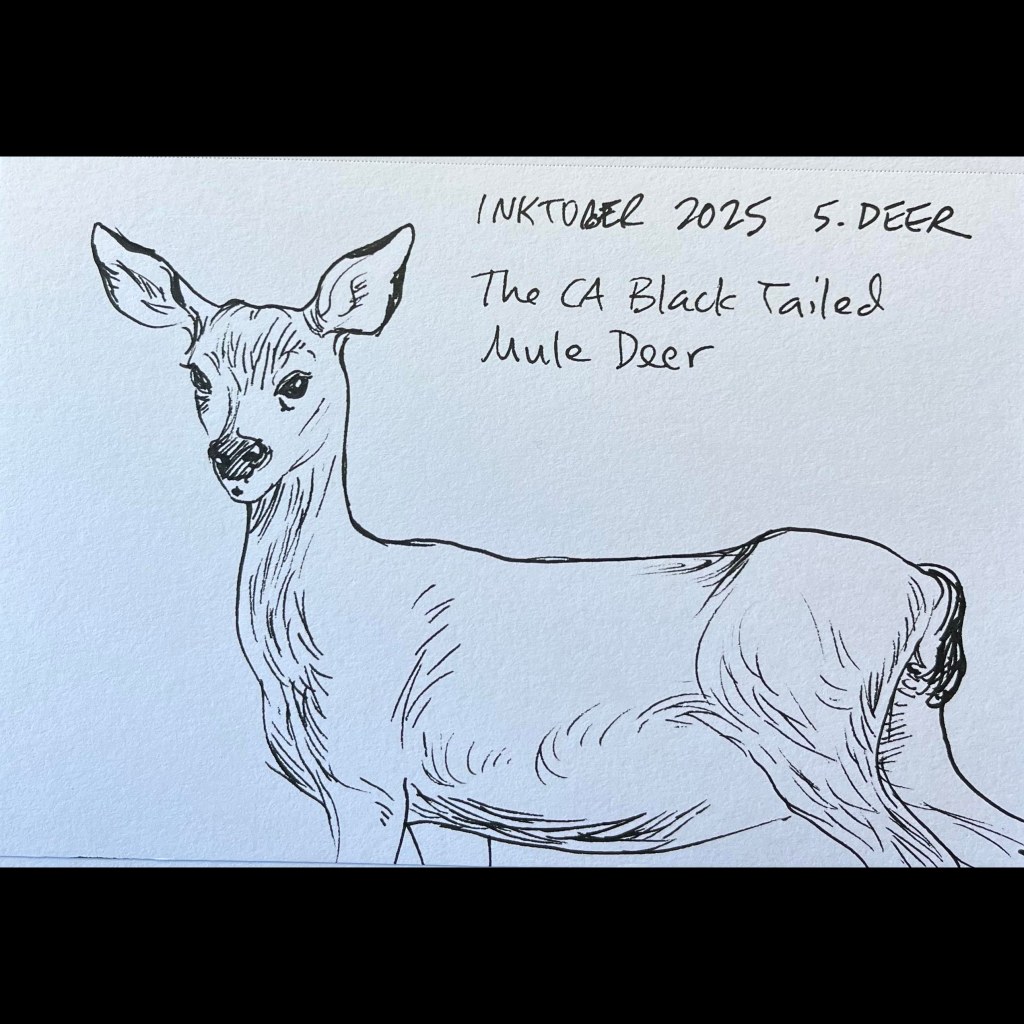 INKTOBER 2025 5. DEER
The CA Black Tailed
Mule Deer